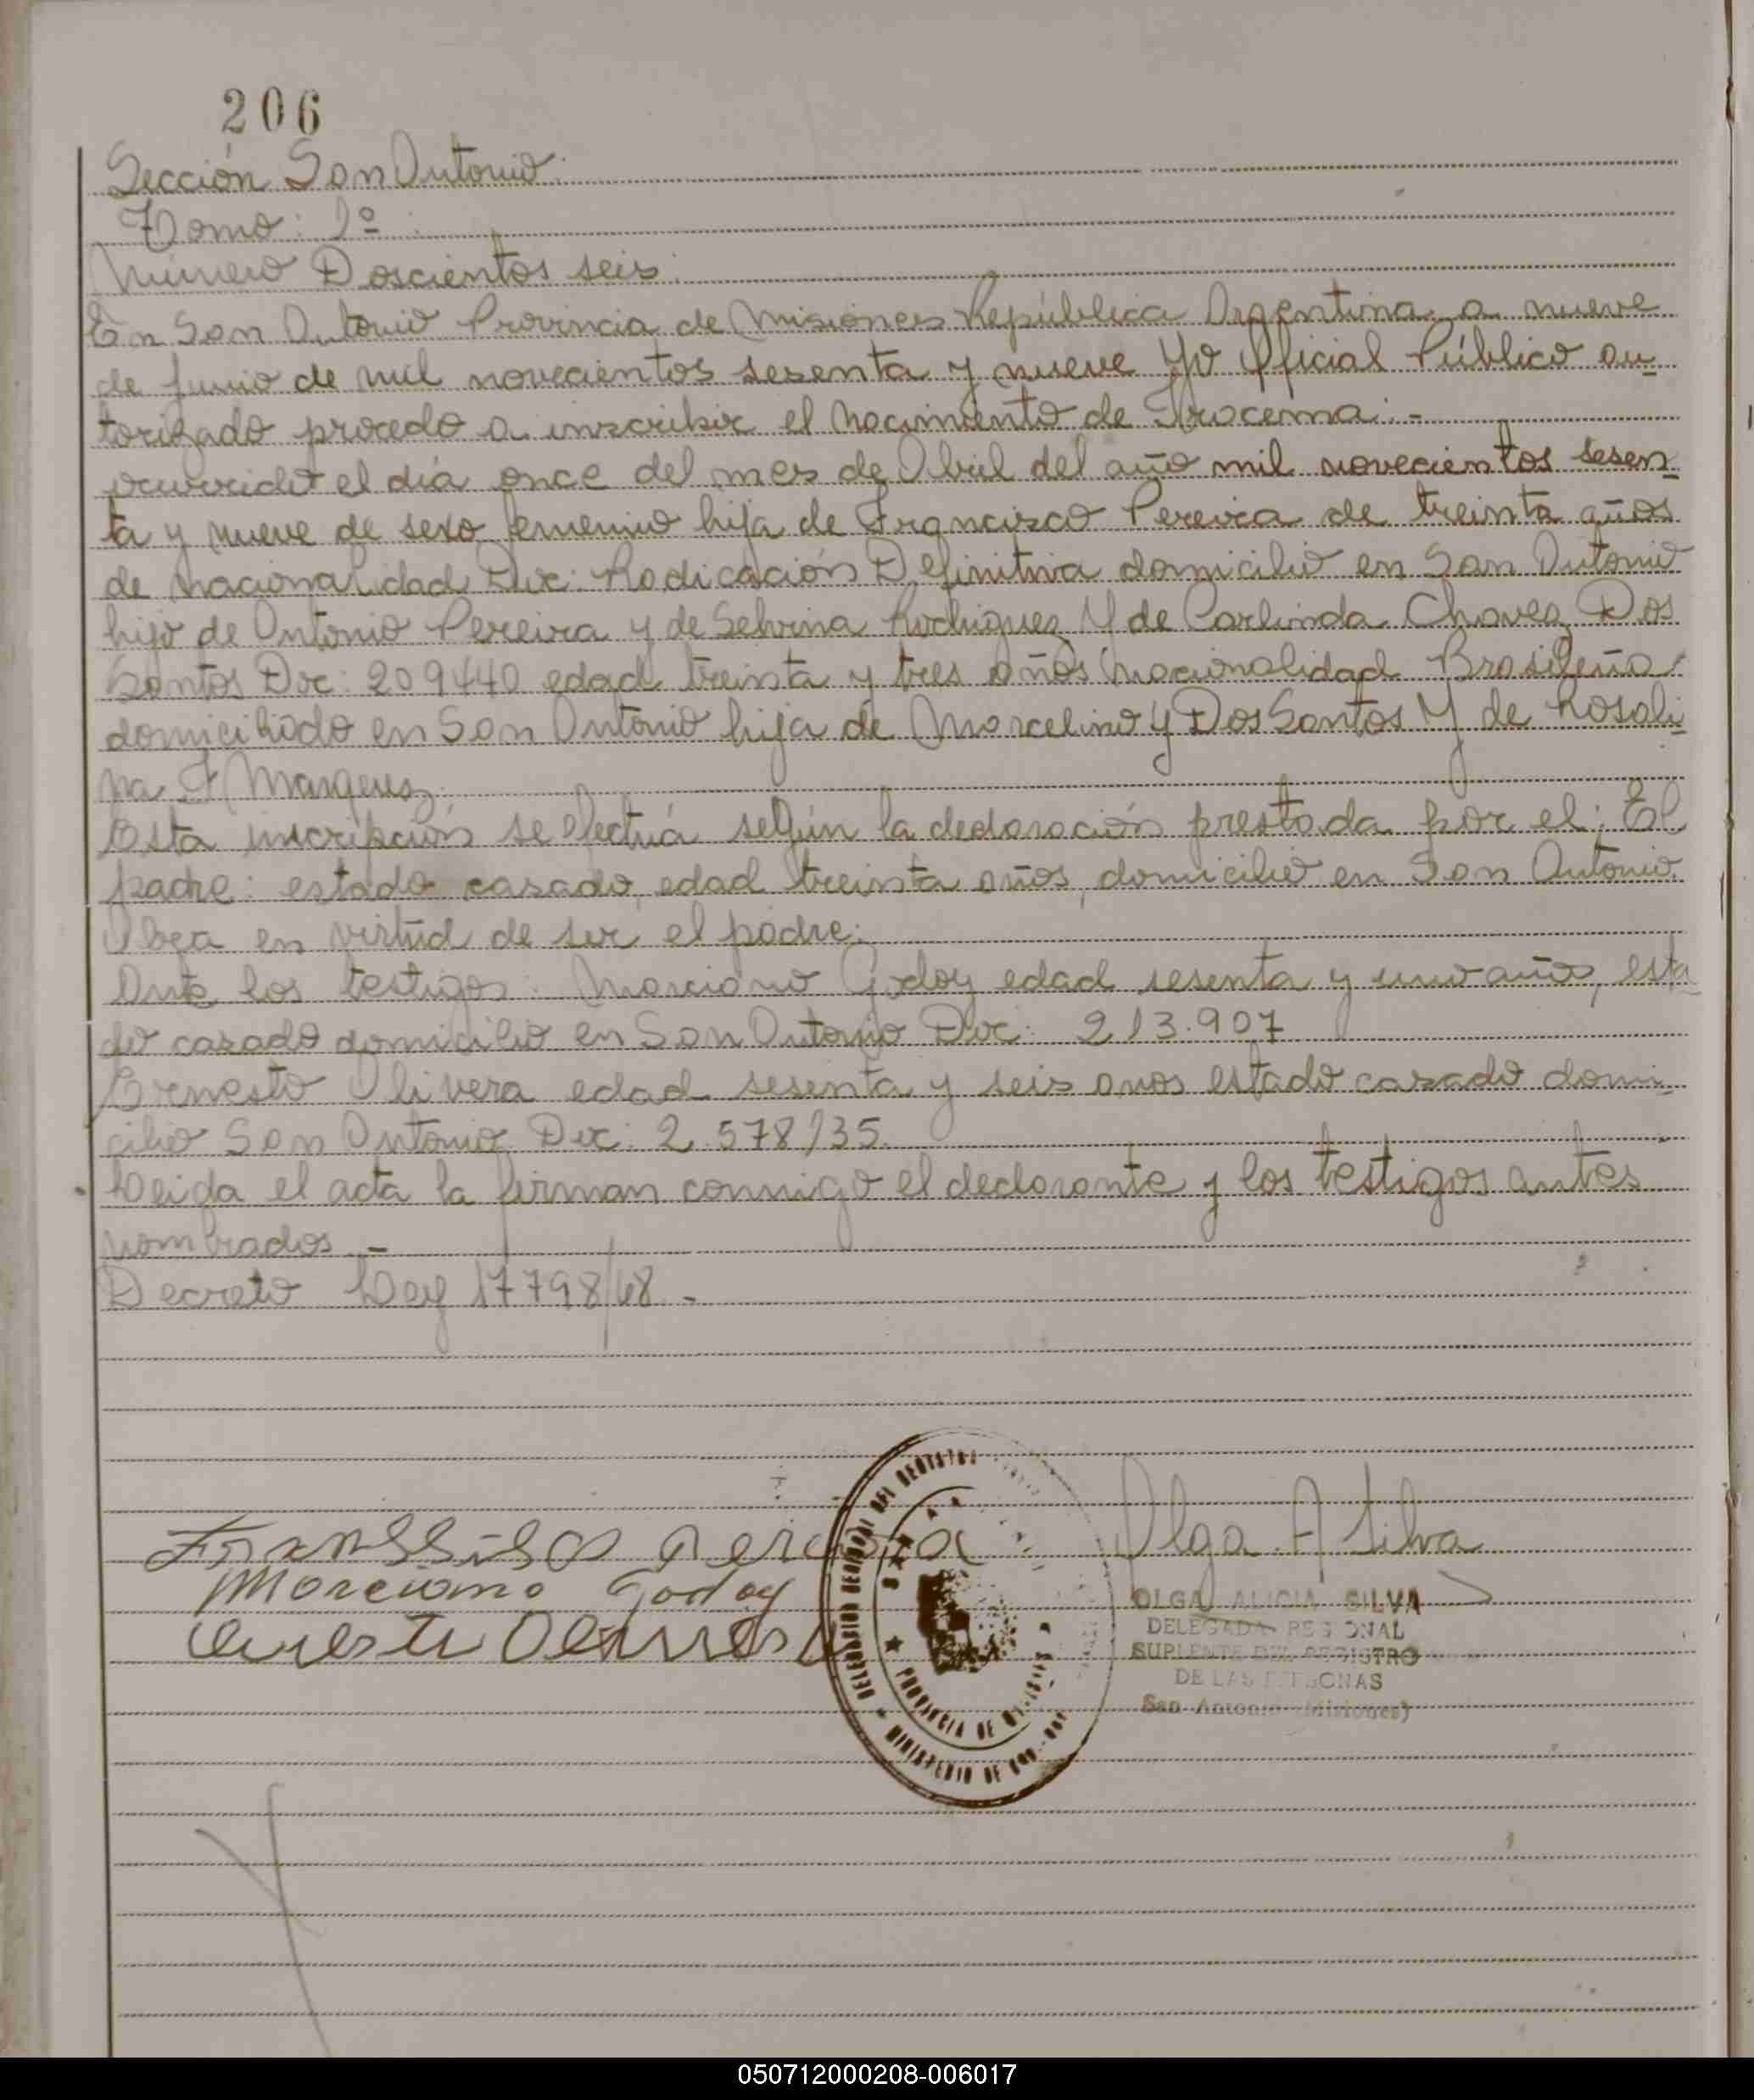 206
Sección San Antonio.
Tomo: 1º
Número Doscientos seis.
En San Antonio Provincia de Misiones República Argentina a nueve
de junio de mil novecientos sesenta y nueve Yo Oficial Público au-
torizado procedo a inscribir el nacimiento de Irocema.-
ocurrido el día once del mes de Abril del año mil novecientos sesen-
ta y nueve de sexo femenino hija de Francisco Pereira de treinta años
de nacionalidad Doc: Radicación Definitiva domicilio en San Antonio
hijo de Antonio Pereira y de Selvina Rodriguez Y de Carlinda Chavez Dos
Santos Doc: 209440 edad treinta y tres años nacionalidad Brasileña
domiciliado en San Antonio hija de Marcelino y Dos Santos Y de Rosali-
na F Marquez.
Esta inscripción se efectuá según la declaración prestada por el: El
padre: estado casado, edad treinta años, domicilio en San Antonio.
Obra en virtud de ser el padre.
Ante los testigos: Marciano Godoy edad sesenta y uno años, esta-
do casado domicilio en San Antonio Doc: 213.907
Ernesto Olivera edad sesenta y seis anos estado casado domi-
cilio San Antonio Doc: 2.578135.
Leida el acta la firman conmigo el declarante y los testigos antes
nombrados.-
Decreto Ley 17798/68.-
Franssisco Pereira
Olga A Silva
Marciano Godoy
OLGA ALICIA SILVA
DELEGADA REGIONAL
SUPLENTE DEL REGISTRO
DE LAS PERSONAS
San Antonio (Misiones)
DELEGACION REGIONAL DEL REGISTRO
PROVINCIA DE MISIONES
MINISTERIO DE
050712000208-006017